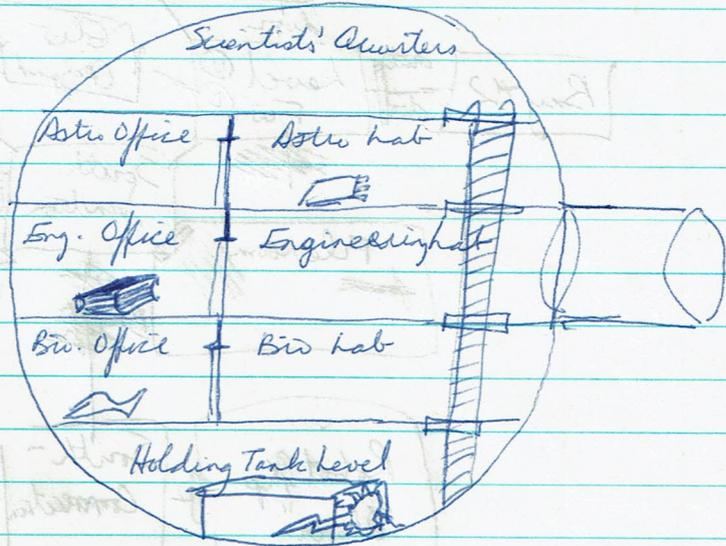 Scientists' Quarters
Astro Office Astro Lab
Eng. Office Engineering Lab
Bio. Office Bio Lab
Holding Tank Level